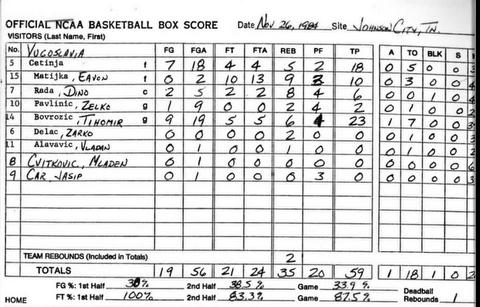 OFFICIAL NCAA BASKETBALL BOX SCORE Date Nov 26, 1984 Site JOHNSON CITY, TN.
VISITORS (Last Name, First)
No. YUGOSLAVIA FG FGA FT FTA REB PF TP A TO BLK S
5 Cetinja f 7 18 4 4 5 2 18 0 5 0 0
15 Matijka, EAVON f 0 2 10 13 9 3 10 0 3 0 0
7 Rada, DINO c 2 5 2 2 8 4 6 0 0 1 0
10 Pavlinic, ZELKO g 1 9 0 0 2 4 2 0 1 0 0
14 Bovrozic, TIHOMIR g 9 19 5 5 6 4 23 1 7 0 0
6 Delac, ZARKO 0 0 0 0 2 0 0 0 1 0 0
11 Alavavic, VLADAN 0 1 0 0 1 0 0 0 1 0 0
8 CVITKOVIC, MLADEN 0 1 0 0 0 0 0 0 0 0 0
9 CAR JASIP 0 1 0 0 0 3 0 0 0 0 0
TEAM REBOUNDS (Included in Totals) 2
TOTALS 19 56 21 24 35 20 59 1 18 1 0
FG %: 1st Half 2nd Half 38.5% Game 33.9% Deadball
HOME FT %: 1st Half 100% 2nd Half 83.3% Game 87.5% Rebounds 1